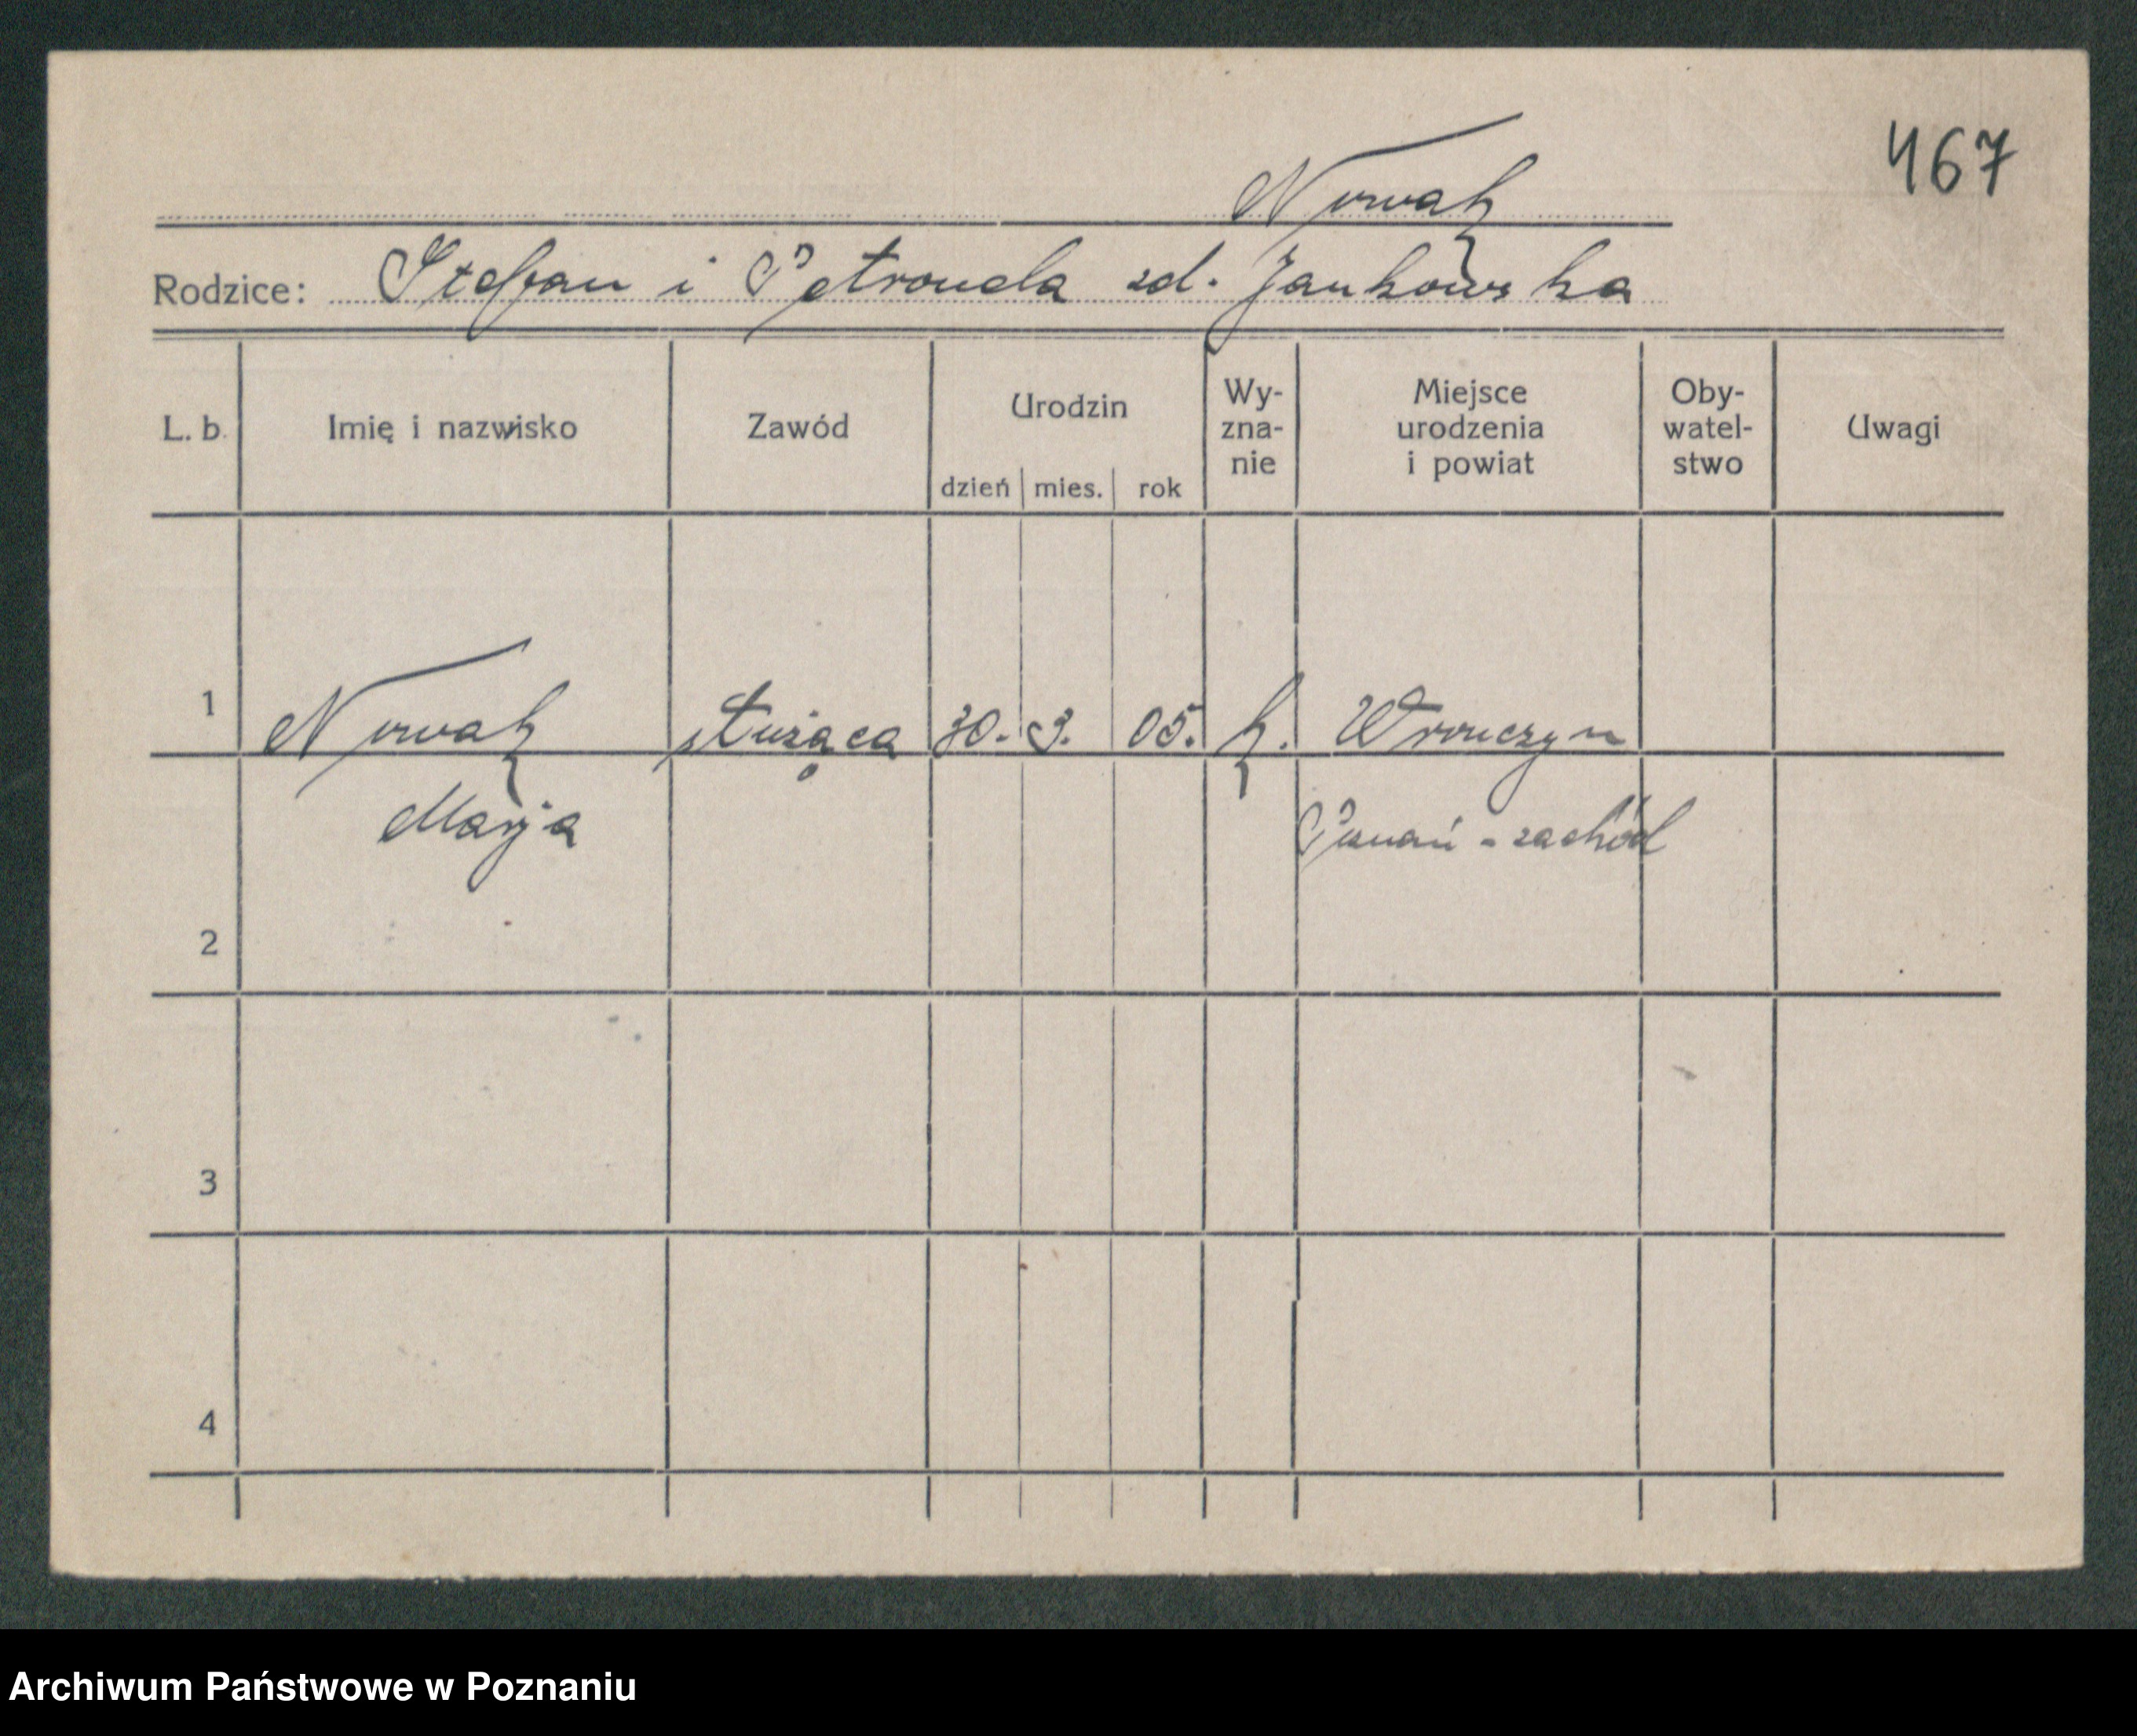 467
Nowak
Rodzice: Stefan i Petronela zd. Jankowska
L. b. Imię i nazwisko Zawód Urodzin dzień mies. rok Wy-zna-nie Miejsce urodzenia i powiat Oby-watel-stwo Uwagi
1 Nowak służąca 30. 3. 05. k. Wronczyn
Marja Poznań - zachód
2
3
4
Archiwum Państwowe w Poznaniu